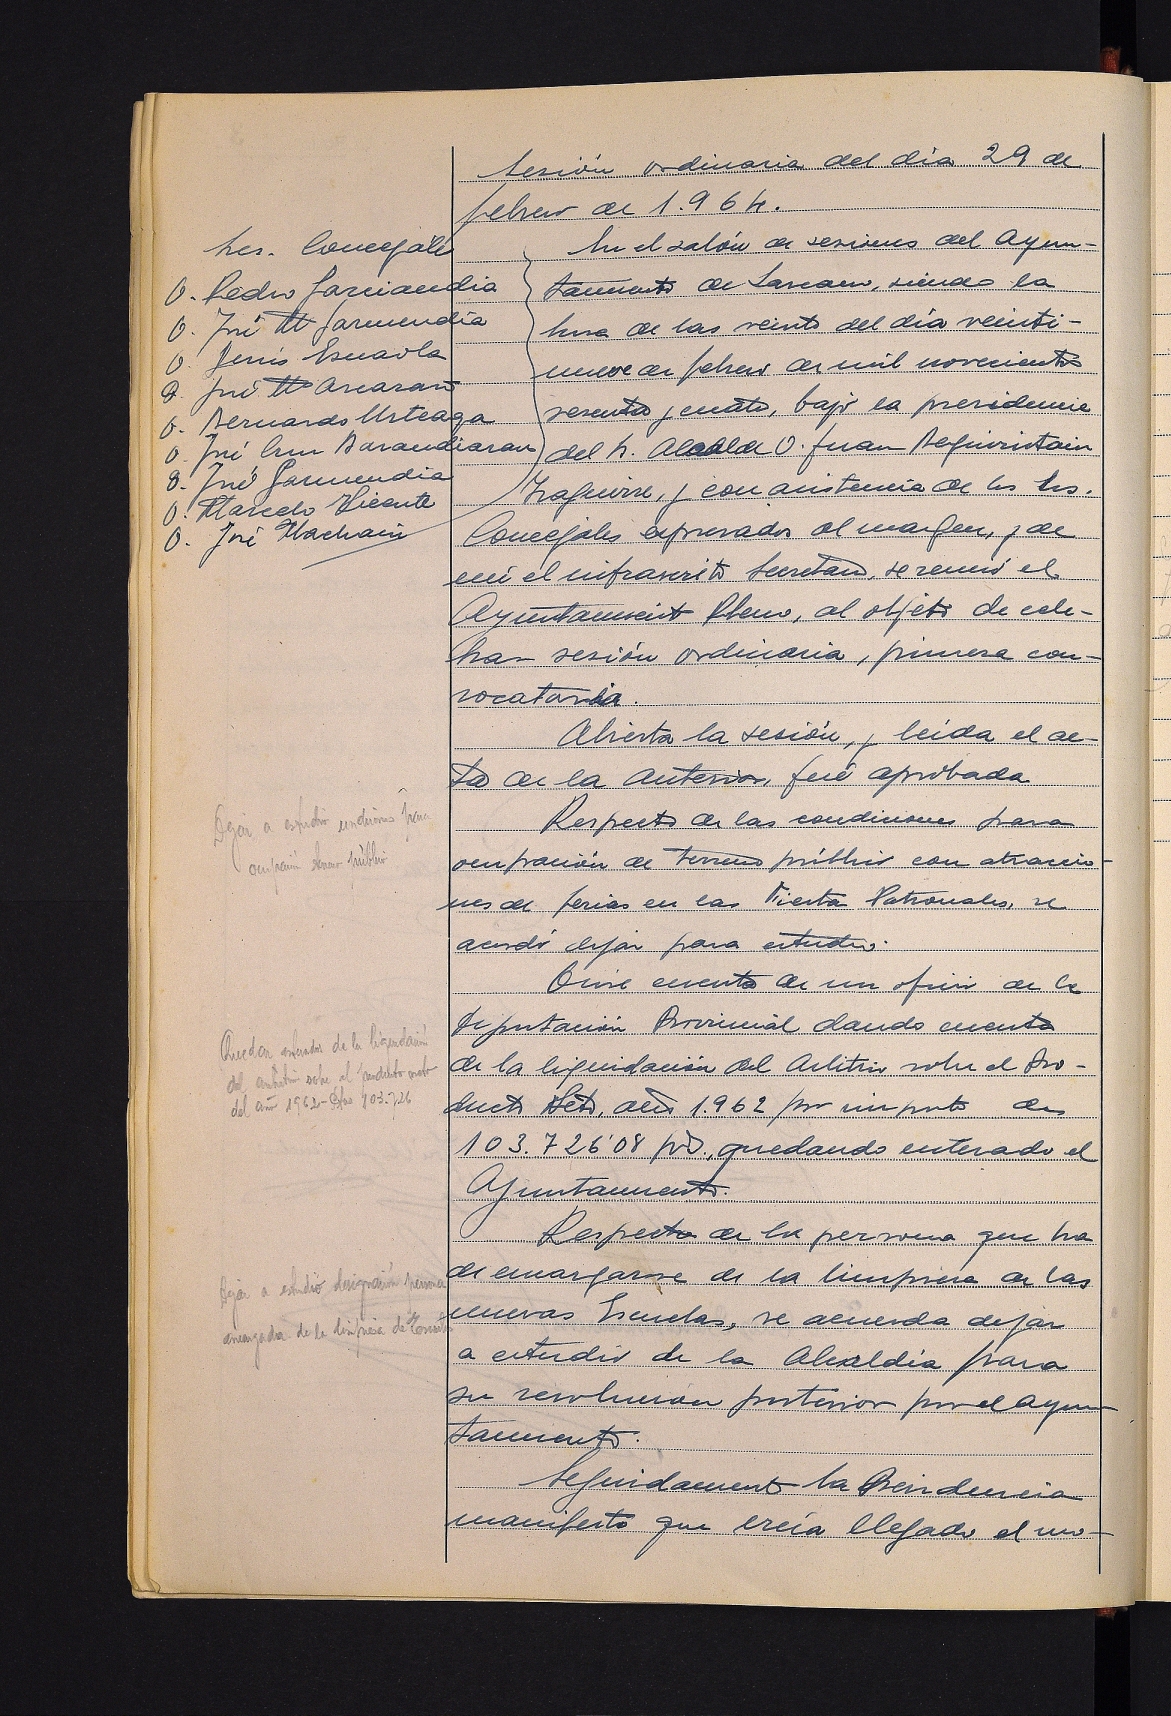 Sesión ordinaria del día 29 de
febrero de 1.964.
Sres. Concejales
D. Pedro Garciandia
D. José Mª Garmendia
D. Jesús Esnaola
D. José Mª Ansarasᵒ
D. Bernardo Urteaga
D. José Luis Barandiaran
D. José Garmendia
D. Marcelo Vicente
D. José Machain
En el salón de sesiones del Ayun-
tamiento de Lazcano, siendo la
hora de las veinte del día veinti-
nueve de febrero de mil novecientos
sesenta y cuatro, bajo la presidencia
del Sr. Alcalde D. Juan Beguiristain
Izaguirre, y con asistencia de los Sres.
Concejales expresados al margen, y de
mí el infrascrito Secretario, se reunió el
Ayuntamiento Pleno, al objeto de cele-
brar sesión ordinaria, primera con-
vocatoria.
Abierta la sesión, y leída el ac-
ta de la anterior, fué aprobada
Dejar a estudio condiciones para
ocupación terreno público
Respecto de las condiciones para
ocupación de terreno público con atraccio-
nes de ferias en las Fiestas Patronales, se
acordó dejar para estudio.
Quedan enterados de la liquidación
del arbitrio sobre el producto neto
del año 1962 - Ptas 103.726
Dióse cuenta de un oficio de la
Diputación Provincial dando cuenta
de la liquidación del Arbitrio sobre el Pro-
ducto Neto, año 1.962 por importe de
103.726'08 pts., quedando enterado el
Ayuntamiento.
Dejar a estudio designación persona
encargada de la limpieza de Escuelas
Respecto de la persona que ha
de encargarse de la limpieza de las
nuevas Escuelas, se acuerda dejar
a estudio de la Alcaldía para
su resolución posterior por el Ayun-
tamiento.
Seguidamente la Presidencia
manifestó que creía llegado el mo-